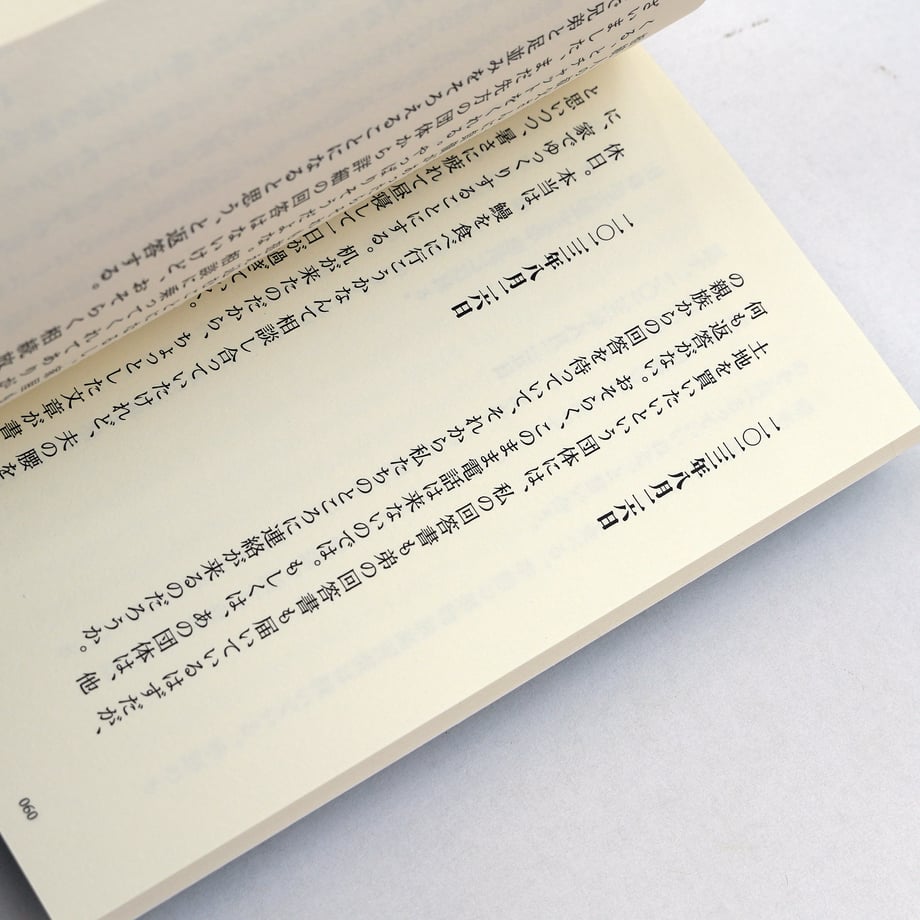 二〇二三年八月二六日
土地を買いたいという団体には、私の回答書も弟の回答書も届いているはずだが、
何も返答がない。おそらく、このまま電話は来ないのでは。もしくは、あの団体は、他
の親族からの回答を待っていて、それから私たちのところに連絡が来るのだろうか。
二〇二三年八月二六日
休日。本当は、鰻を食べに行こうかなんて相談し合っていたけれど、夫の腰を
に、家でゆっくりすることにする。机が来たのだから、ちょっとした文章が書
と思いつつ、暑さに疲れて昼寝して一日が過ぎていく。
さいました、また先方の団体から詳細の回答はないけど、おそらく相続放
で兄弟と足並みをそろえることになると思う、と返答する。
060